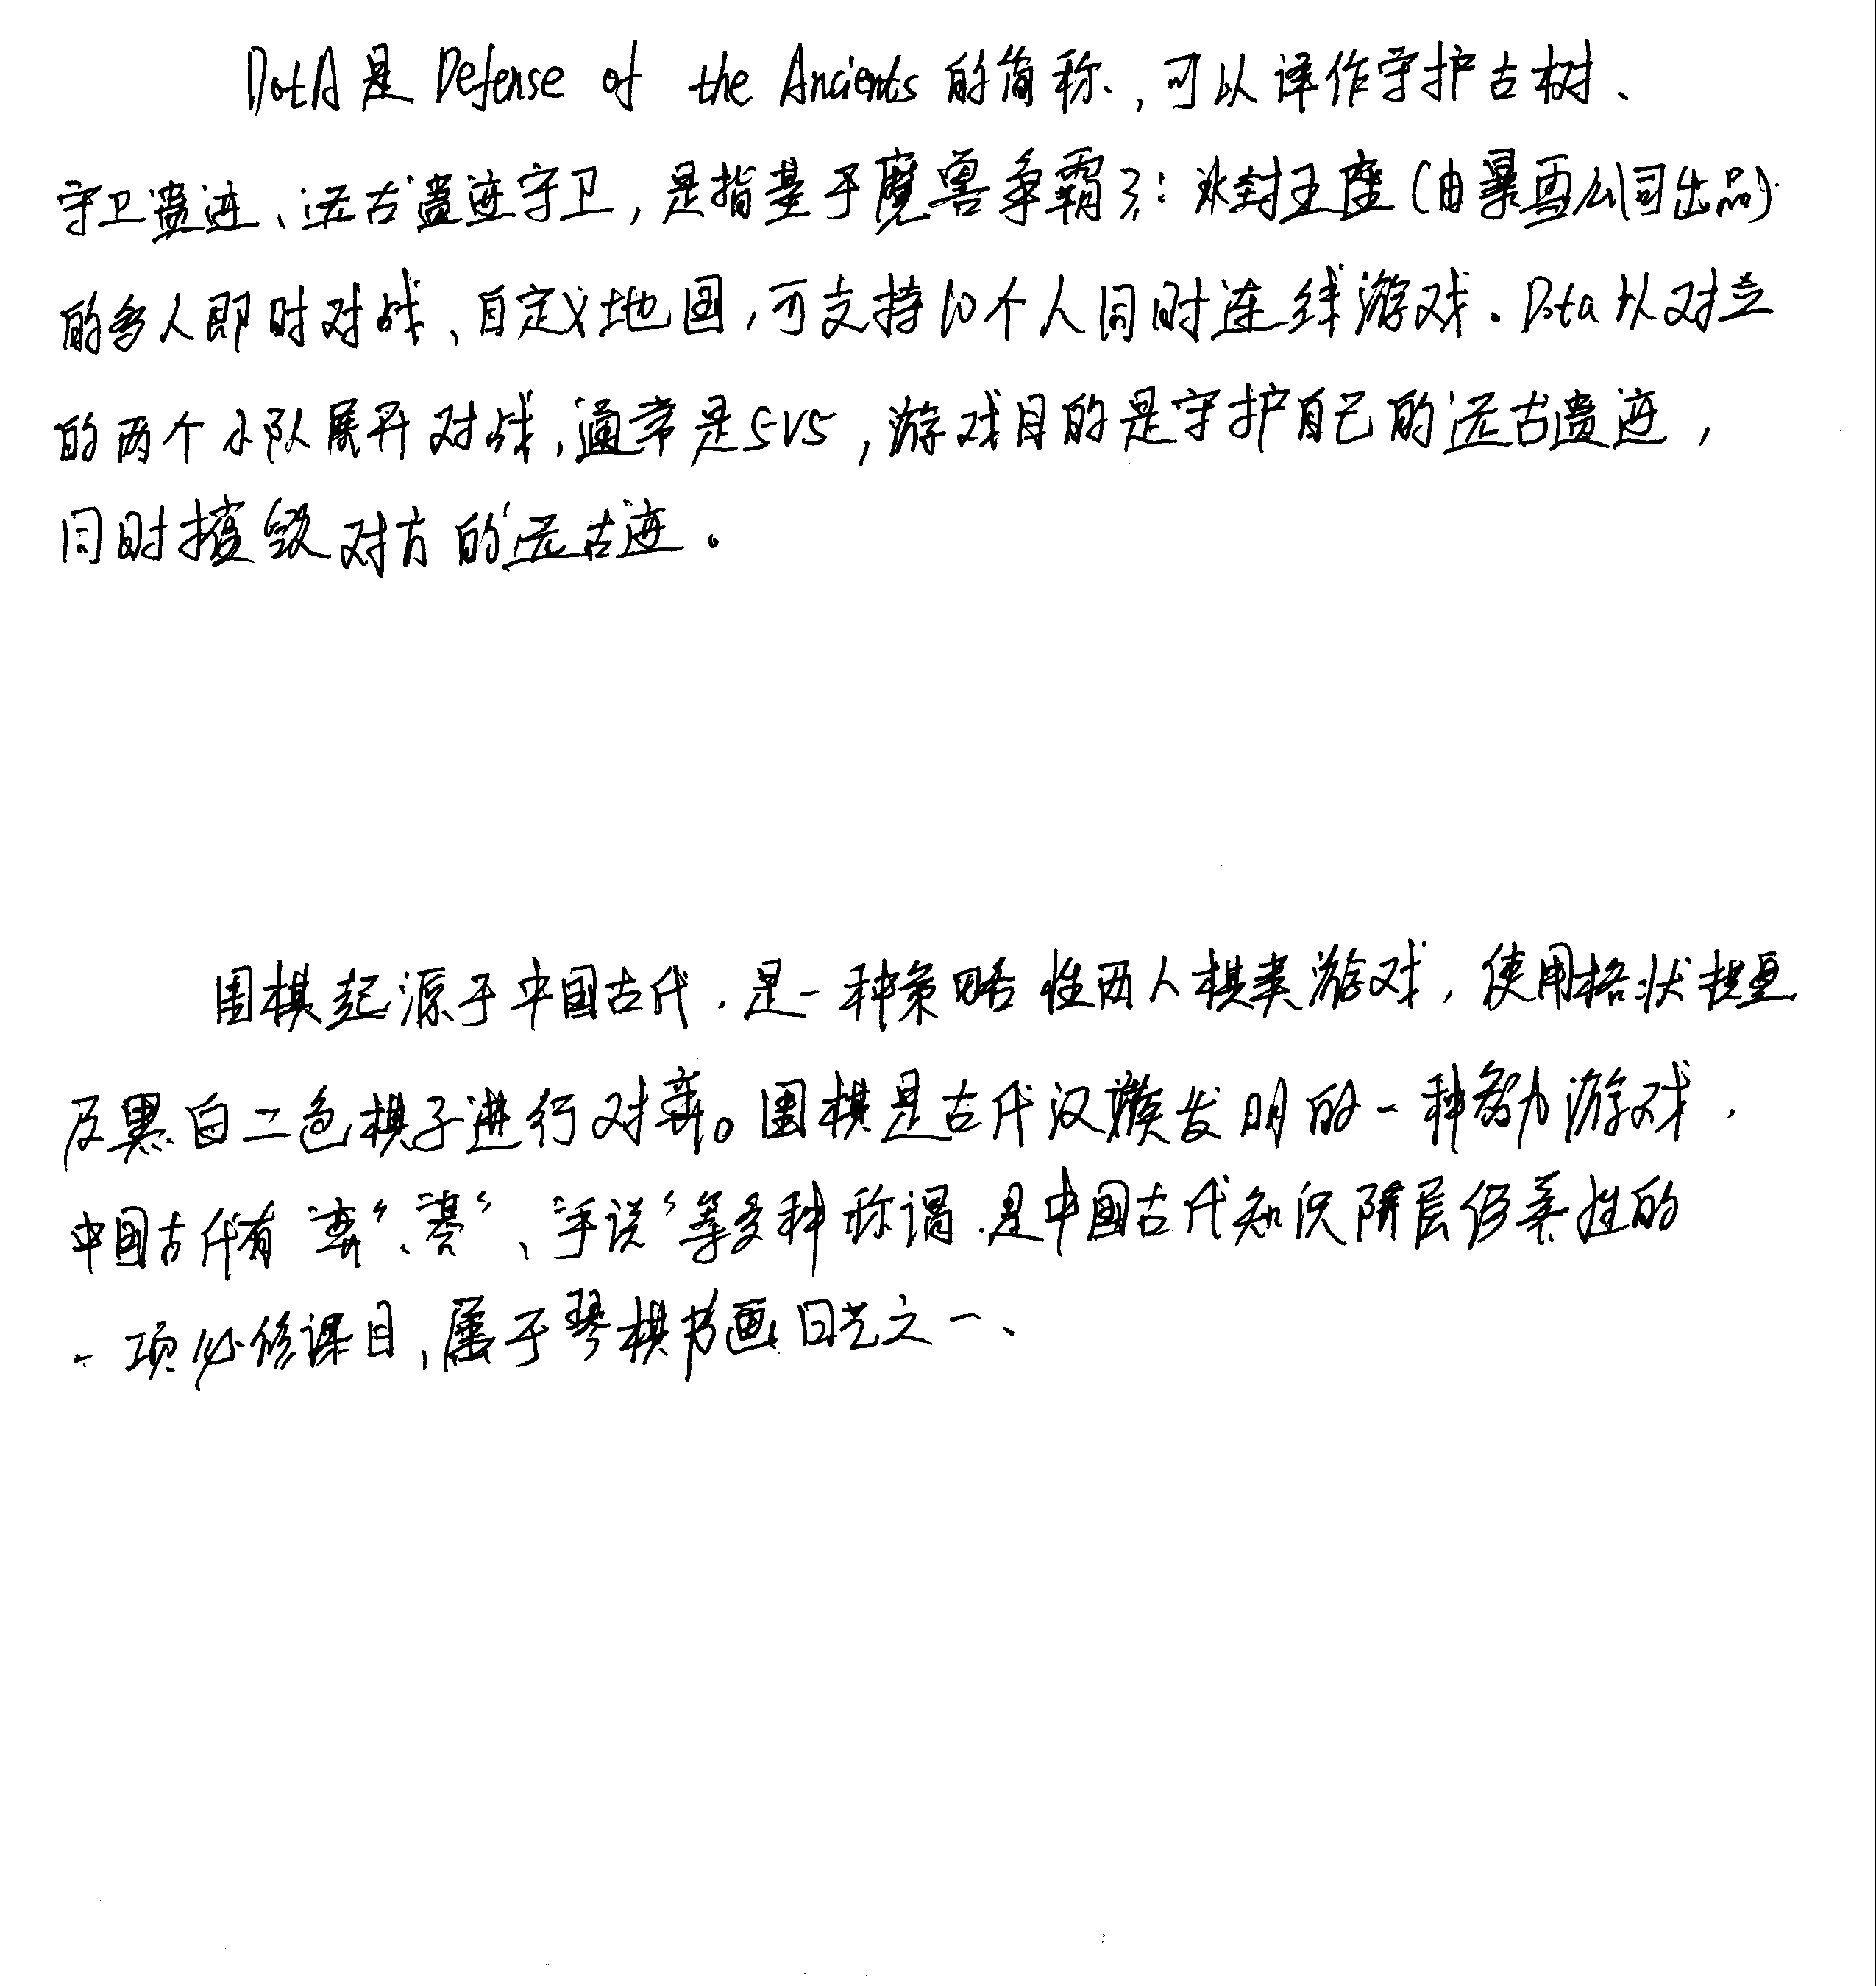 DotA是 Defense of the Ancients 的简称,可以译作守护古树、
守卫遗迹、远古遗迹守卫,是指基于魔兽争霸3:冰封王座(由暴雪公司出品)
的多人即时对战、自定义地图,可支持10个人同时连线游戏。Dota以对立
的两个小队展开对战,通常是5V5,游戏目的是守护自己的远古遗迹,
同时摧毁对方的远古迹。
围棋起源于中国古代.是一种策略性两人棋类游戏,使用格状棋盘
及黑白二色棋子进行对弈。围棋是古代汉族发明的一种智力游戏,
中国古代有“弈”、“碁”、“手谈”等多种称谓.是中国古代知识阶层修养性的
一项必修课目,属于琴棋书画四艺之一、